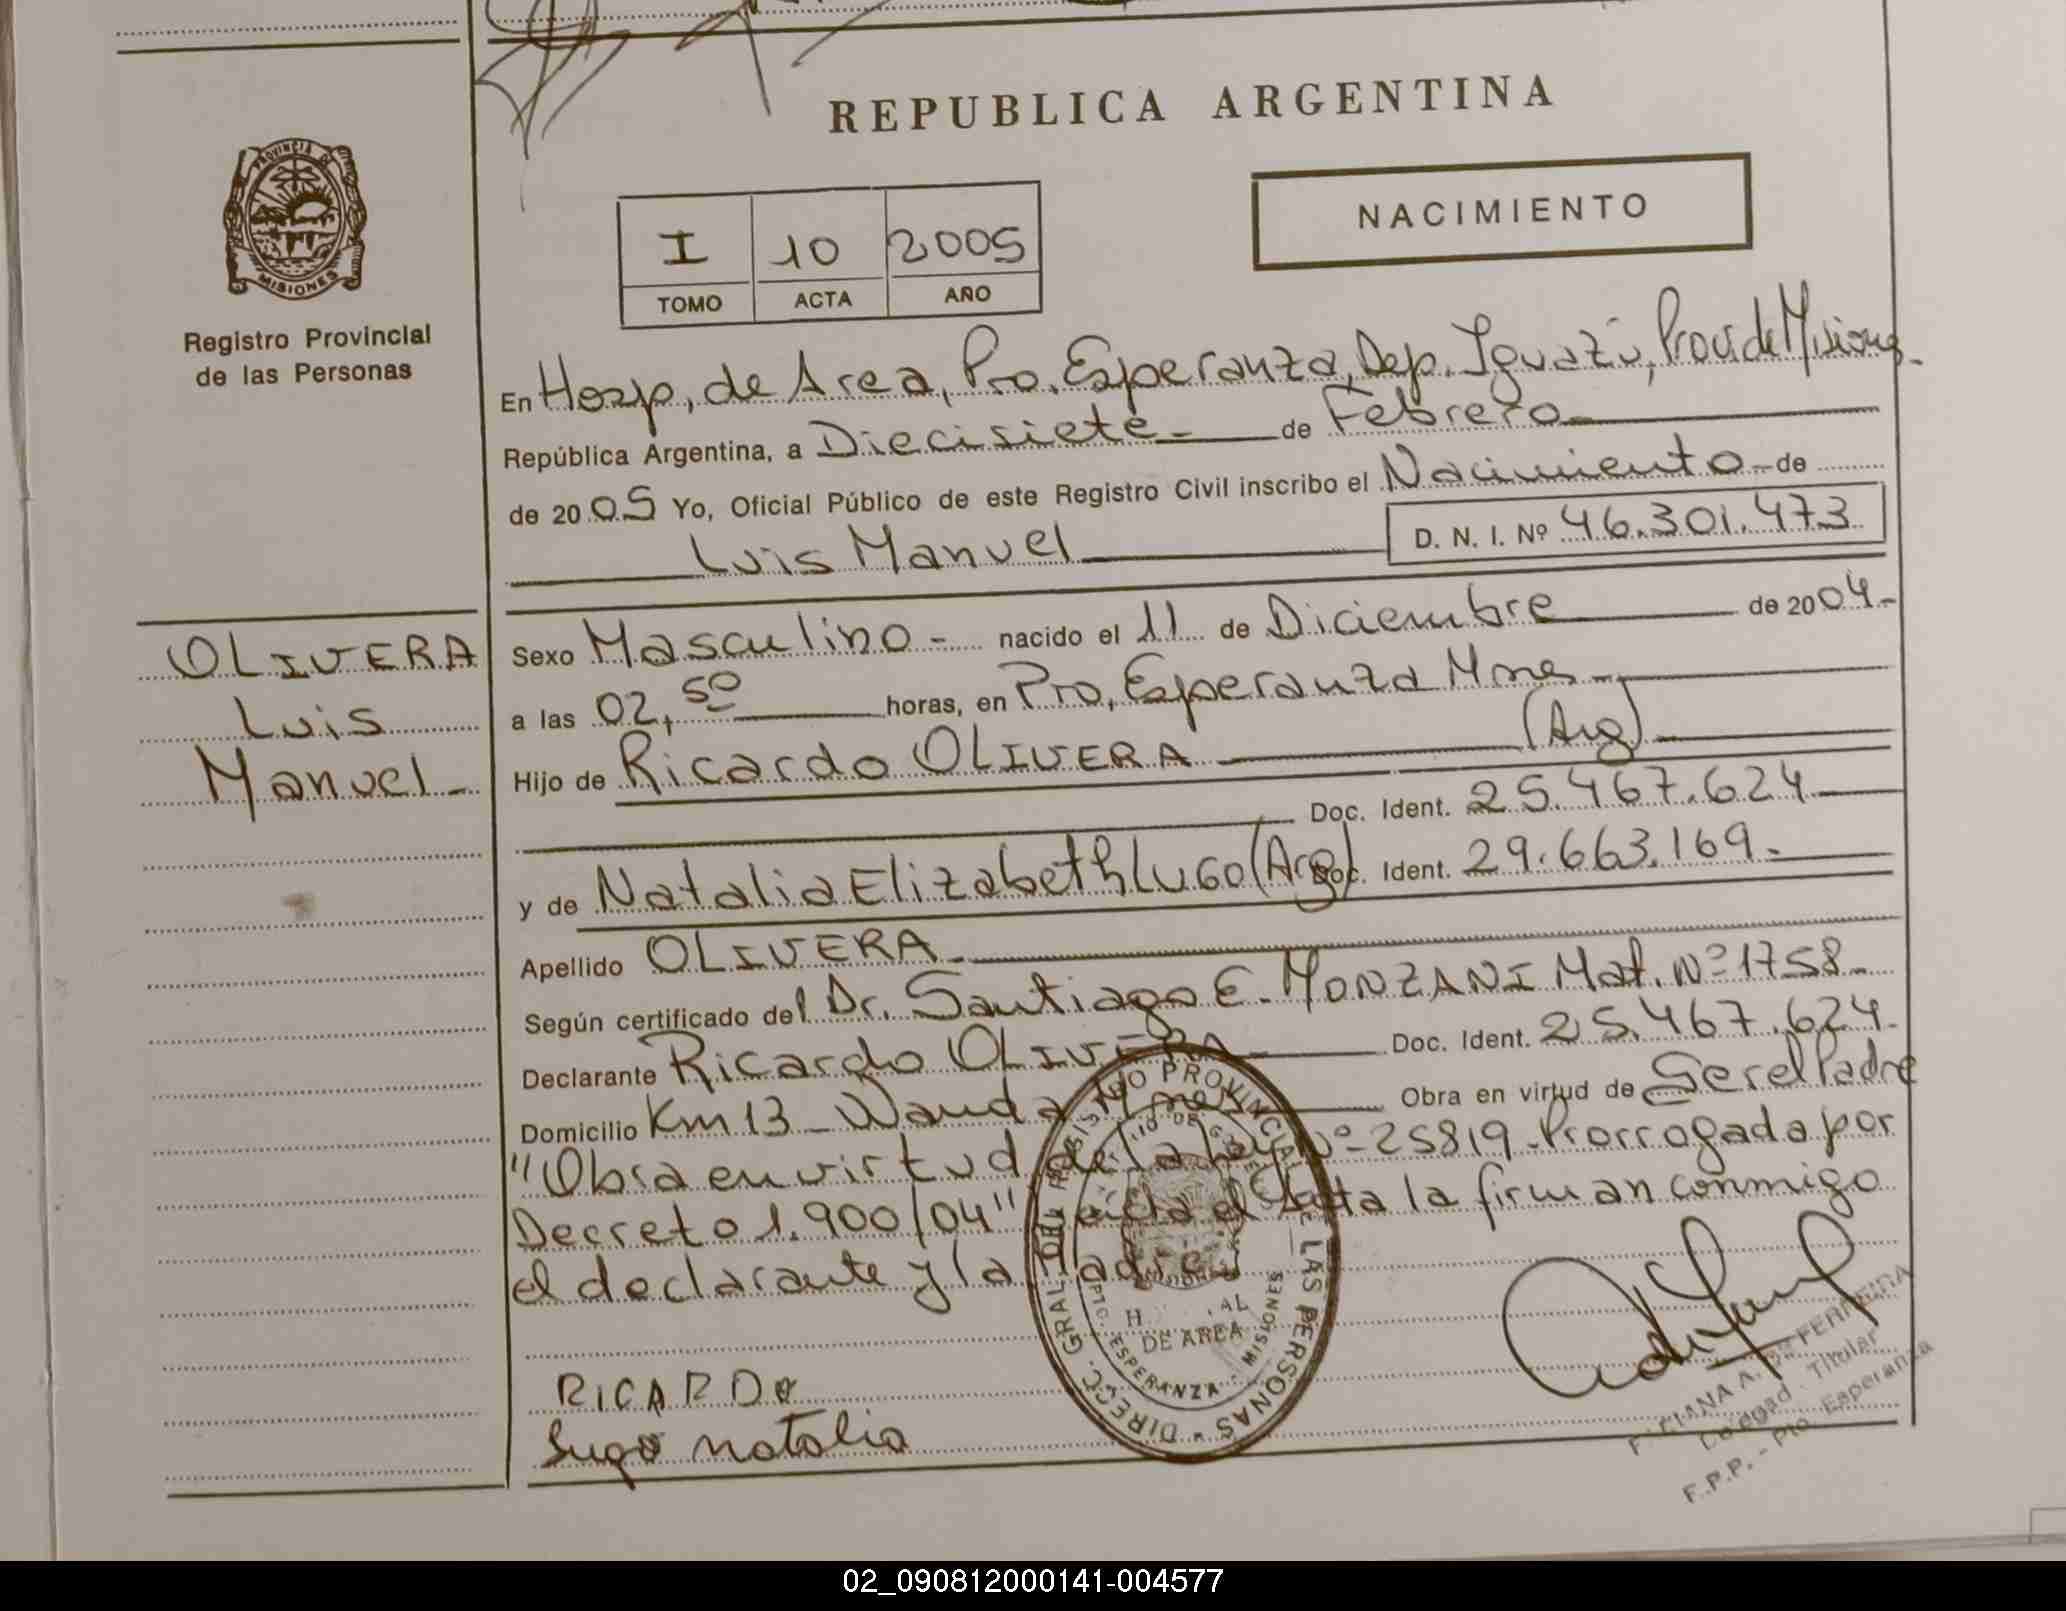 REPUBLICA ARGENTINA
PROVINCIA DE
MISIONES
Registro Provincial
de las Personas
I 10 2005
TOMO ACTA AÑO
NACIMIENTO
En Hosp. de Area, Pto. Esperanza, Dep. Iguazú, Prov. de Misiones-
República Argentina, a Diecisiete- de Febrero
de 2005 Yo, Oficial Público de este Registro Civil inscribo el Nacimiento de
Luis Manuel D. N. I. Nº 46.301.473
OLIVERA
Luis
Manuel-
Sexo Masculino- nacido el 11 de Diciembre de 2004-
a las 02,50 horas, en Pto, Esperanza Mnes-
Hijo de Ricardo OLIVERA (Arg)
Doc. Ident. 25.467.624
y de Natalia Elizabeth LUGO (Arg) Doc. Ident. 29.663.169.-
Apellido OLIVERA-
Según certificado del Dr. Santiago E. MONZANI Mat. Nº 1758-
Declarante Ricardo OLIVERA Doc. Ident. 25.467.624-
Domicilio Km 13 - Wanda Mnes Obra en virtud de Ser el Padre
"Obra en virtud de la Ley Nº 25819-Prorrogada por
Decreto 1.900/04" Leída el Acta la firman conmigo
el declarante y la Madre
RICARDO
Lugo natalia
DIRECC. GRAL. DEL REGISTRO PROVINCIAL DE LAS PERSONAS
DE AREA
ESPERANZA - MISIONES
FERREIRA
Delegad. Titular
F.P.P. - Pto. Esperanza
02_090812000141-004577